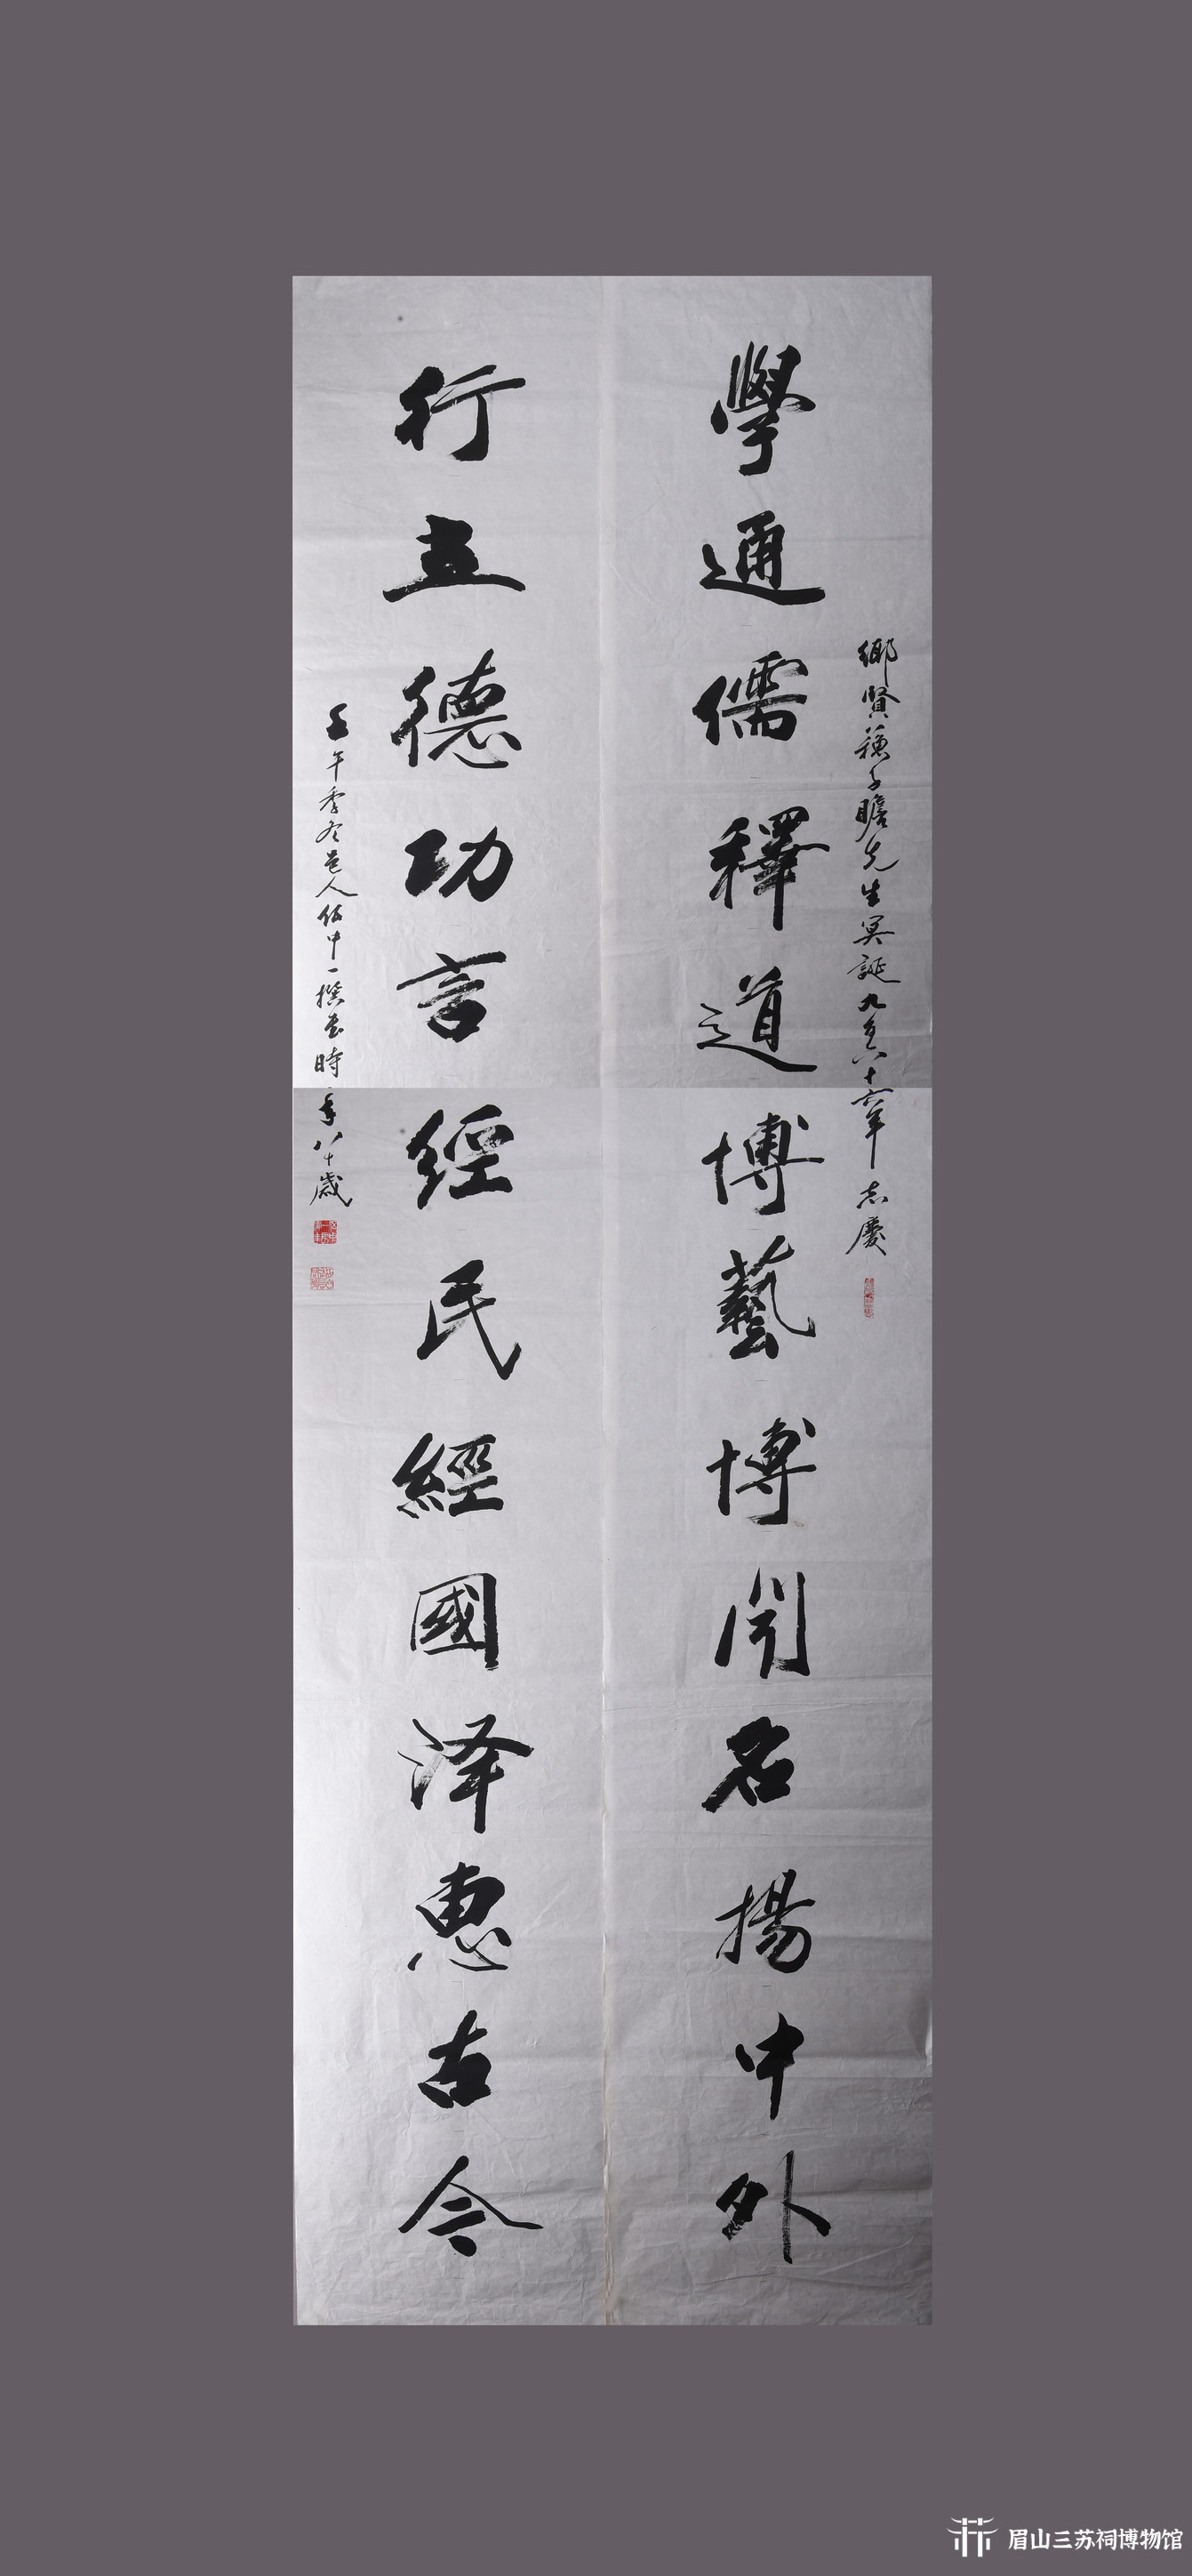 鄉賢蘇子瞻先生冥誕九百六十六年志慶
學通儒釋道博藝博聞名揚中外
行立德功言經民經國泽惠古今
壬午季冬邑人伍中一撰書時年八十歲
眉山三苏祠博物馆